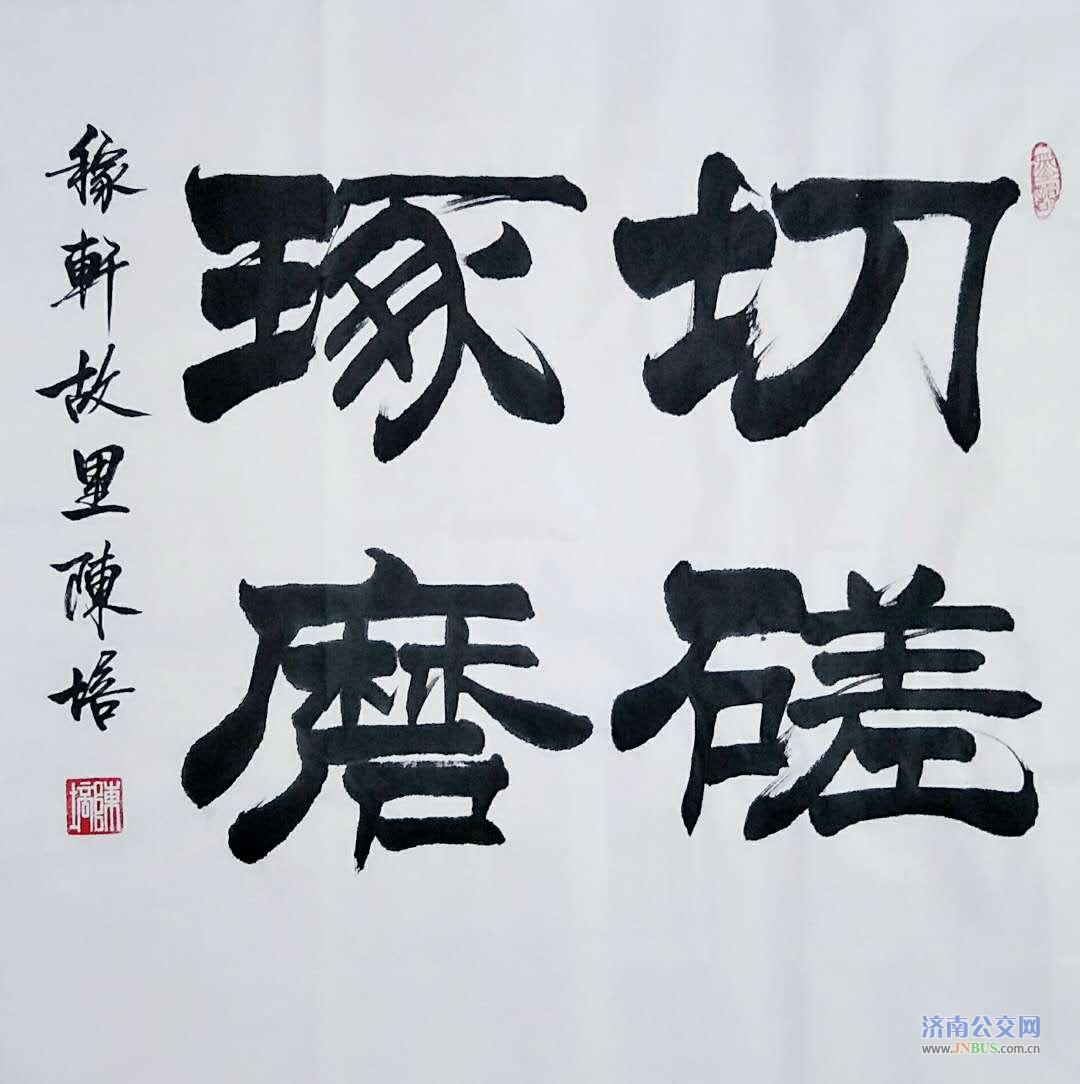 切磋
琢磨
稼軒故里陳培
陳培
济南公交网
www.JNBUS.com.cn